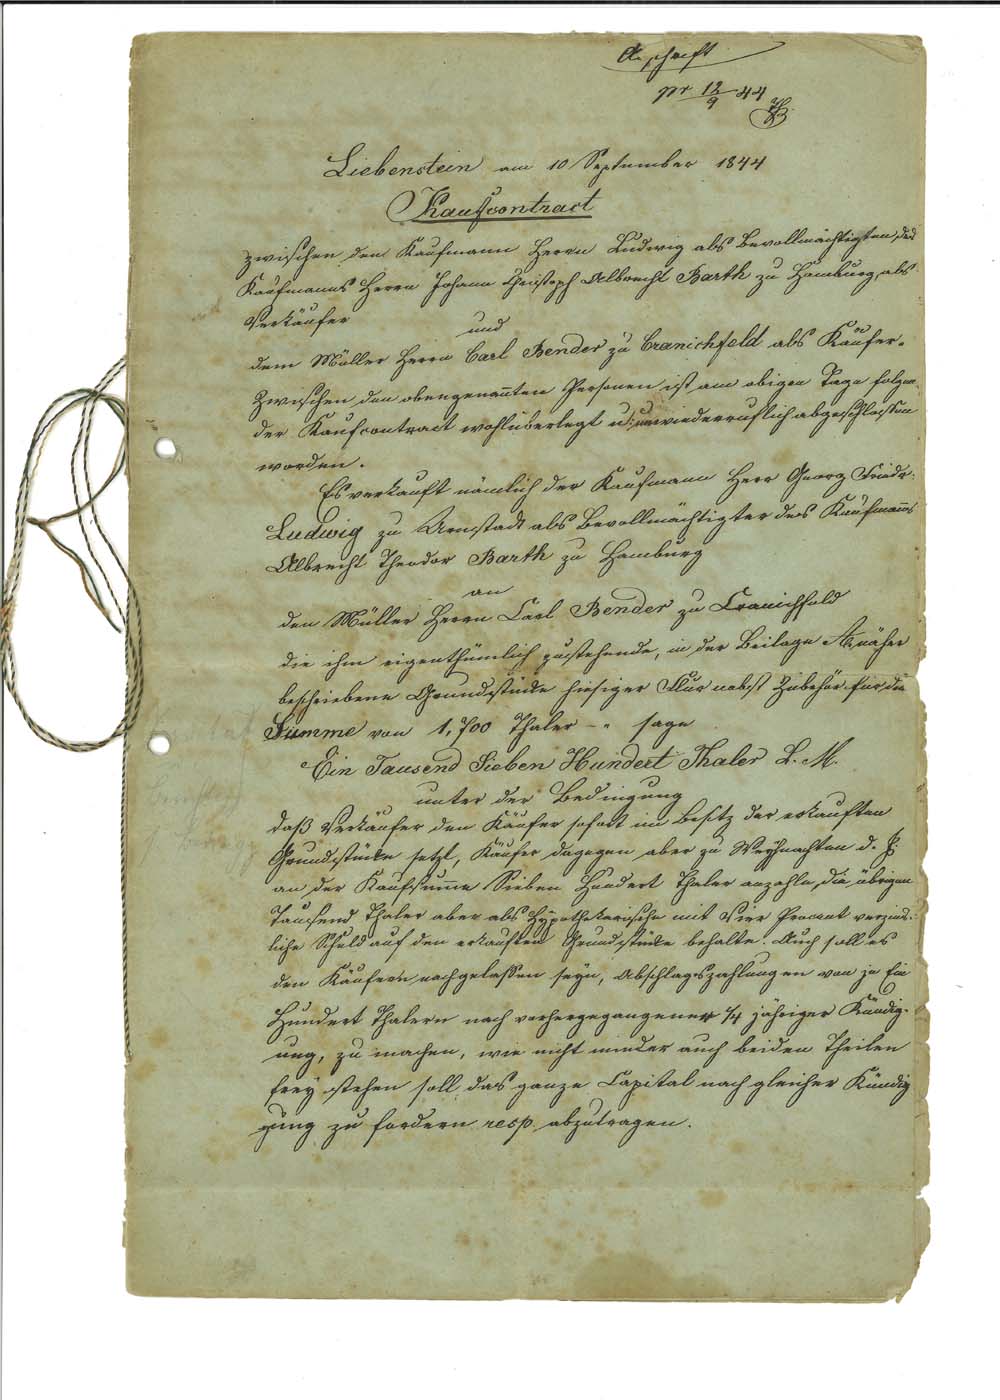 Abschrift
pr. 12/9 44
Liebenstein am 10 September 1844
Kaufcontract
zwischen den Kaufmann Herrn Ludwig als Bevollmächtigten des
Kaufmanns Herrn Johann Christoph Albrecht Barth zu Hamburg, als
Verkäufer
und
dem Müller Herrn Carl Bender zu Cranichfeld als Käufer.
Zwischen den obengenannten Personen ist am obigen Tage folgen-
der Kaufcontract wohlüberlegt u. unwiederruflich abgeschlossen
worden.
Es verkauft nämlich der Kaufmann Herr Georg Friedr:
Ludwig zu Arnstadt als Bevollmächtigter des Kaufmanns
Albrecht Theodor Barth zu Hamburg
an
den Müller Herrn Carl Bender zu Cranichfeld
die ihm eigenthümlich zustehende, in der Beilage A. näher
beschriebene Grundstücke hiesiger Flur nebst Zubehör für die
Summe von 1,700 Thaler -„ sage
Ein Tausend Sieben Hundert Thaler L. M.
unter der Bedingung
daß Verkäufer den Käufer sofort im Besitz der erkauften
Grundstücke setzt, Käufer dagegen aber zu Weyhnachten d. J.
an der Kaufsumme Sieben Hundert Thaler anzahle, die übrigen
Tausend Thaler aber als Hypothekarische mit Vier Procent verzins-
liche Schuld auf den erkauften Grundstücke behalte. Auch soll es
den Käufern nachgelassen seyn, Abschlagszahlungen von je Ein
Hundert Thalern nach vorhergegangener 1/4 jähriger Kündig-
ung, zu machen, wie nicht minder auch beiden Theilen
frey stehen soll das ganze Capital nach gleicher Kündig
gung zu fordern resp. abzutragen.